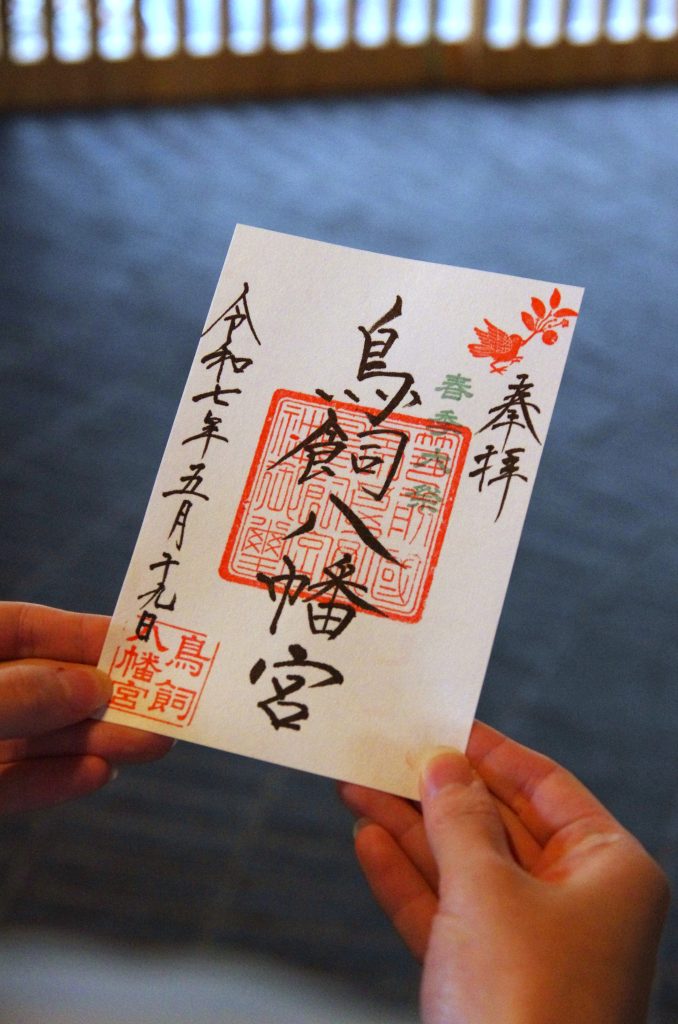 奉拝
春季大祭
鳥飼八幡宮
令和七年五月十九日
鳥飼
八幡宮